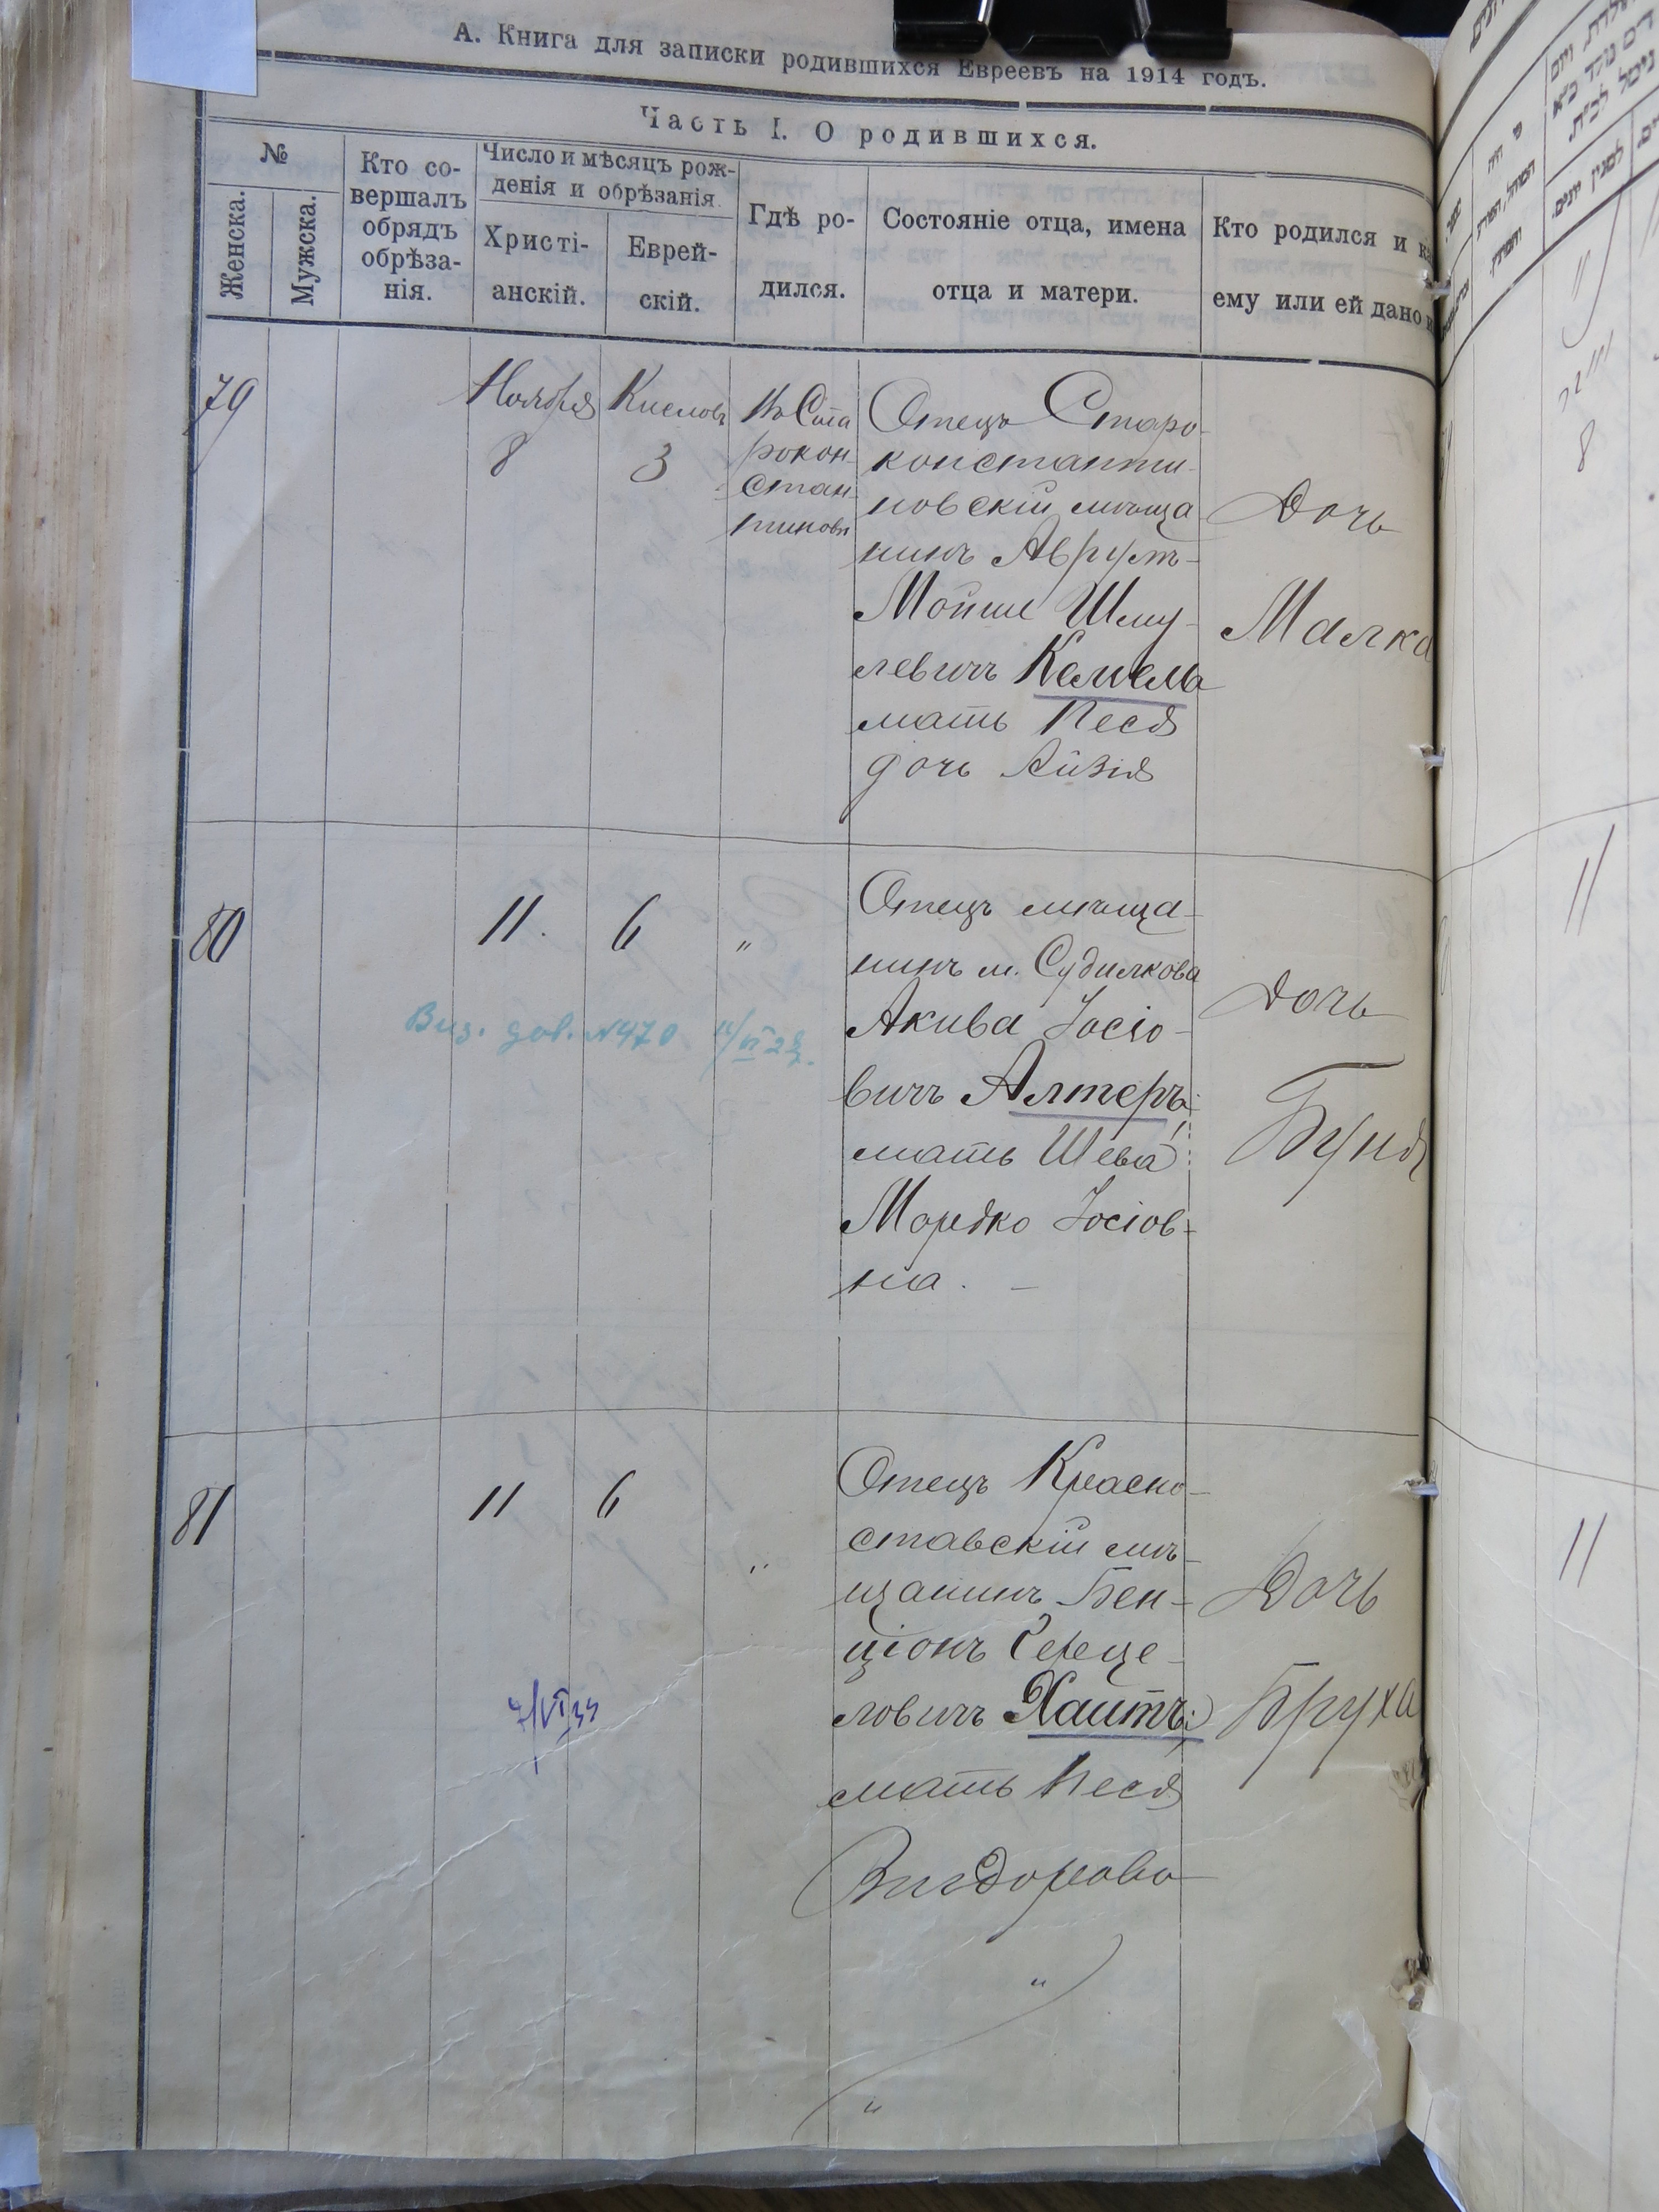 А. Книга для записки родившихся Евреевъ на 1914 годъ.
Часть I. О родившихся.
№
Женска.
Мужска.
Кто со-
вершалъ
обрядъ
обрѣза-
нія.
Число и мѣсяцъ рож-
денія и обрѣзанія.
Христі-
анскій.
Еврей-
скій.
Гдѣ ро-
дился.
Состояніе отца, имена
отца и матери.
Кто родился и к
ему или ей дано и
79
Ноября
8
Кислевъ
3
Въ Ста
рокон-
стан-
тиновѣ
Отецъ Старо-
константи-
новскій мѣща
нинъ Аврумъ-
Мойше Шму-
левичъ Кемель
мать Песя
дочь Айзія
Дочь
Малка
80
11.
6
"
Отецъ мѣща-
нинъ м. Судилкова
Акива Іосіо-
вичъ Алтеръ;
мать Шева
Мордко Іосіов-
на. –
Дочь
Буня
Виз. дов. №470
81
11
6
"
Отецъ Красно-
ставскій мѣ-
щанинъ Бен-
ціонъ
ловичъ Хаитъ;
мать Песя
Вигдорова
Дочь
Бруха
"
"
8
11
11